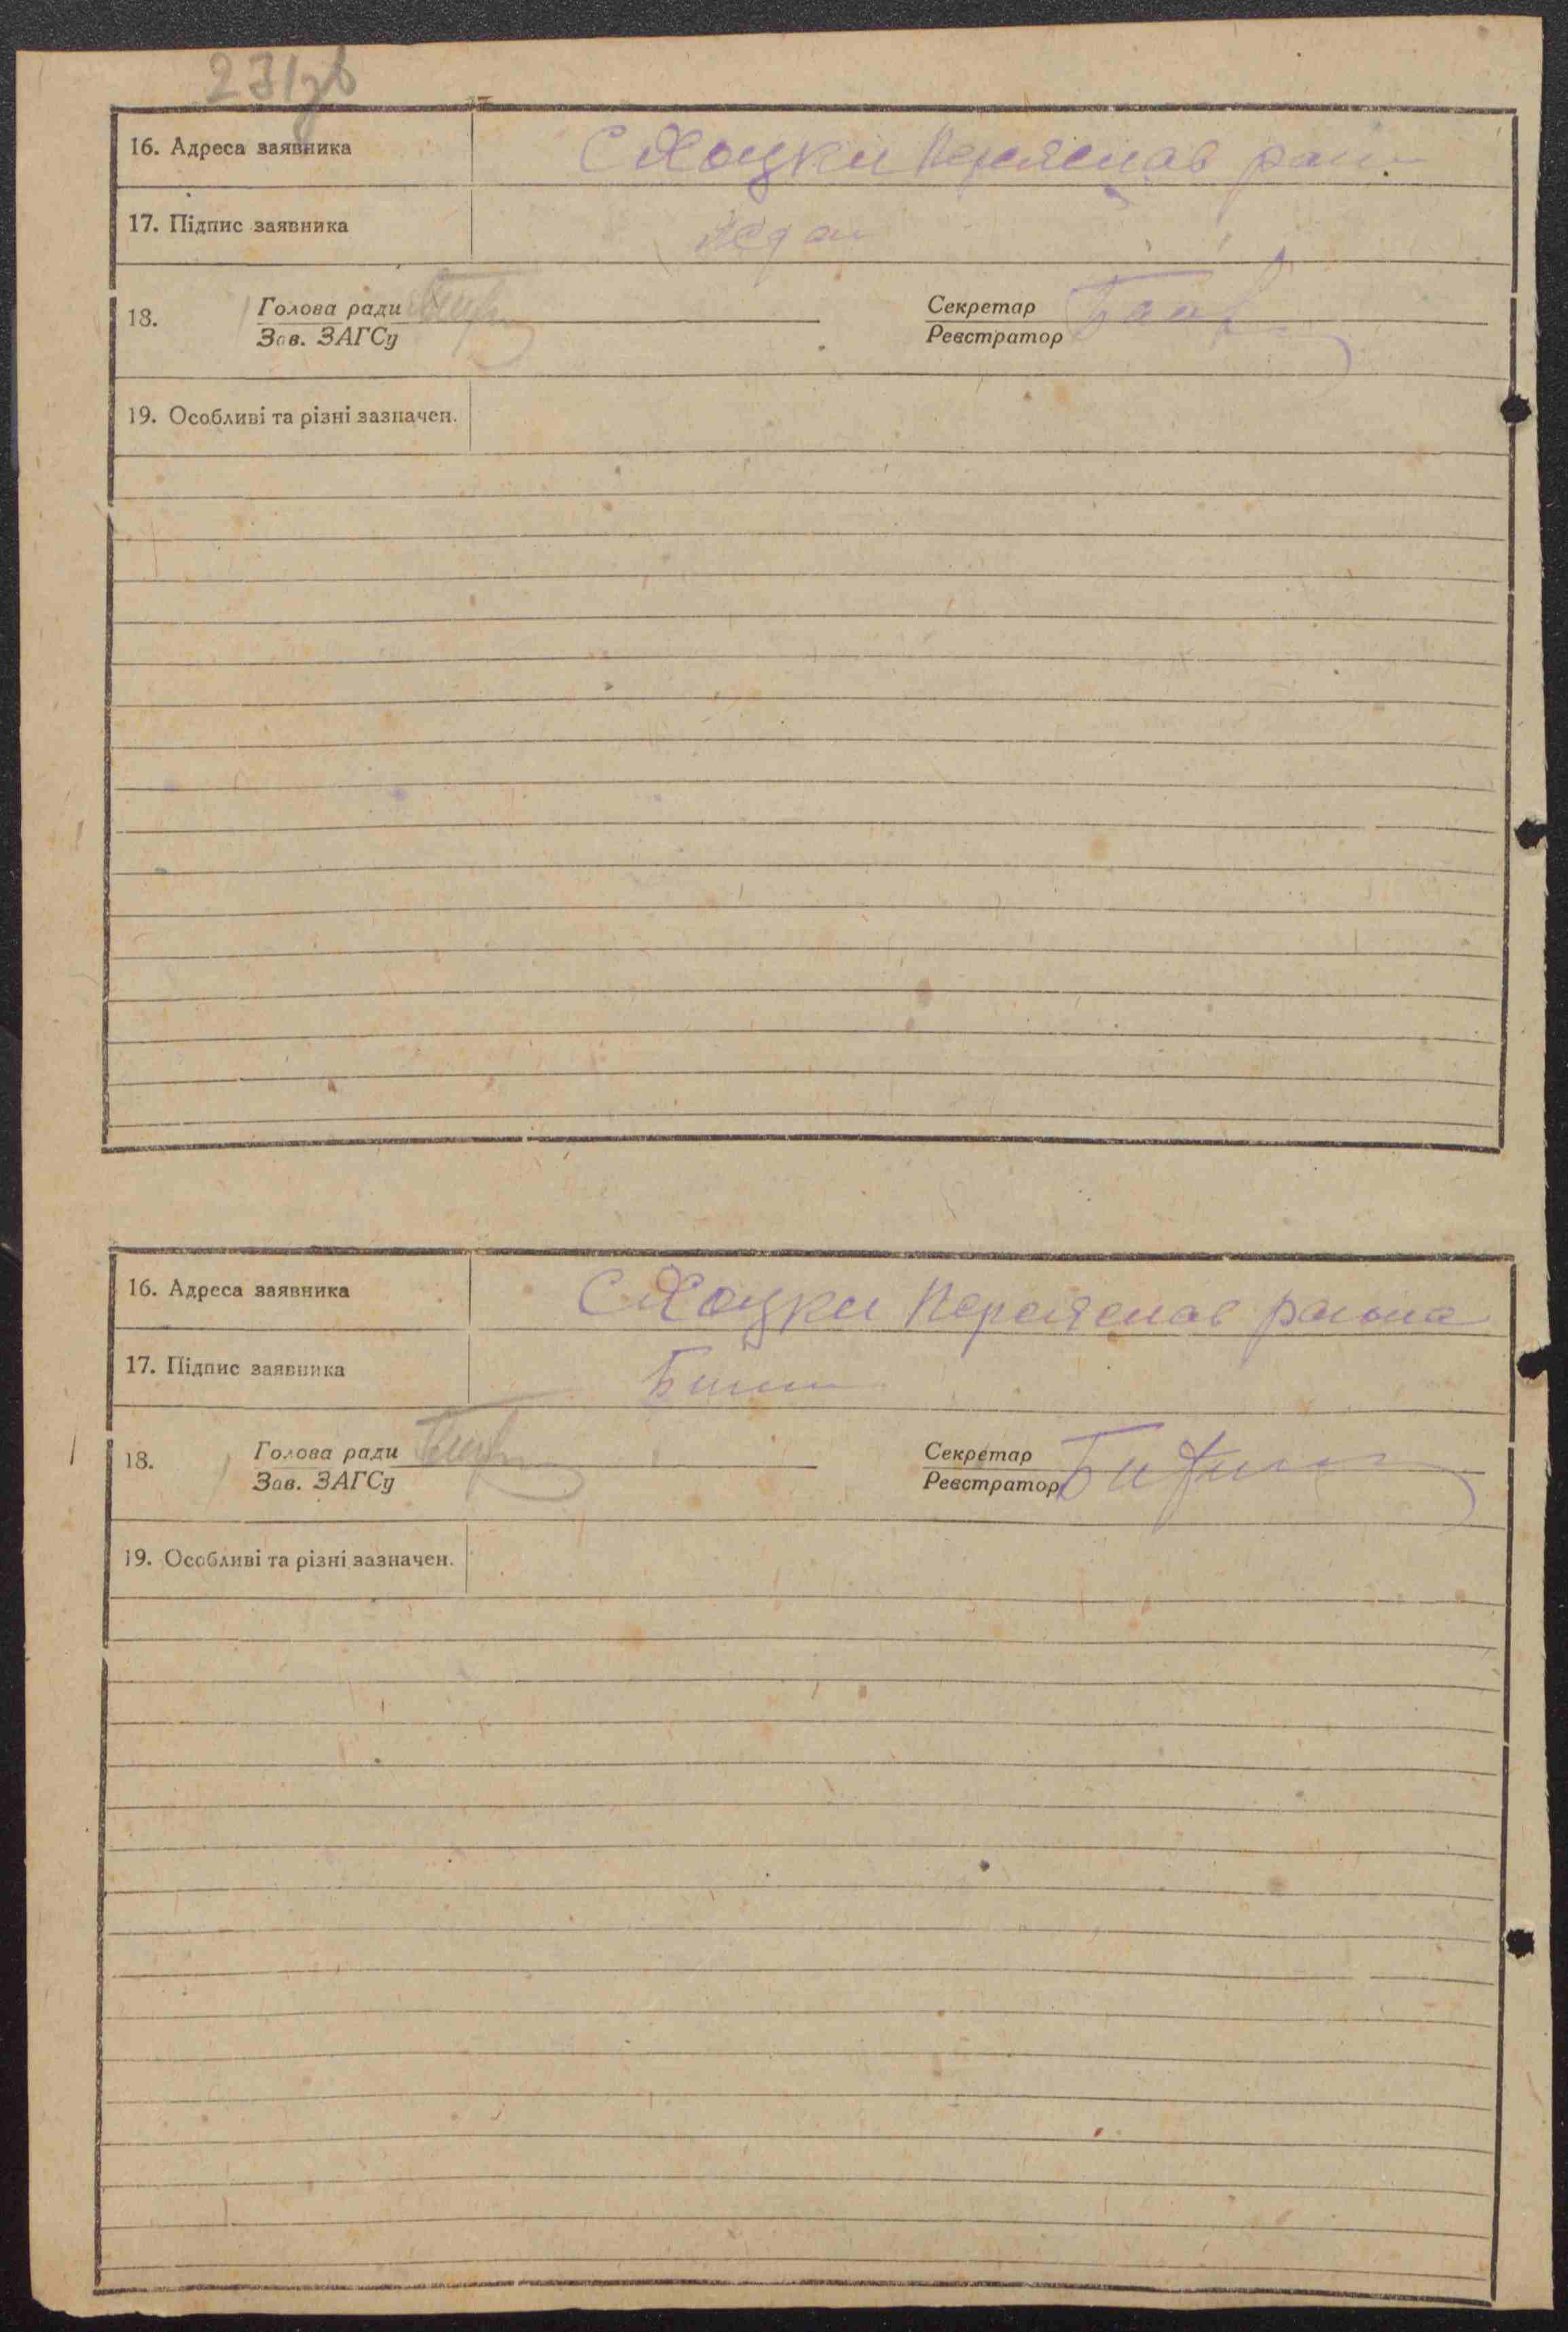 231зв
16. Адреса заявника С Хоцки Переяслав рай.
17. Підпис заявника
18. Голова ради Секретар
Зав. ЗАГСу Реєстратор
19. Особливі та різні зазначен.
16. Адреса заявника С Хоцки Переяслав района
17. Підпис заявника
18. Голова ради Секретар
Зав. ЗАГСу Реєстратор
19. Особливі та різні зазначен.